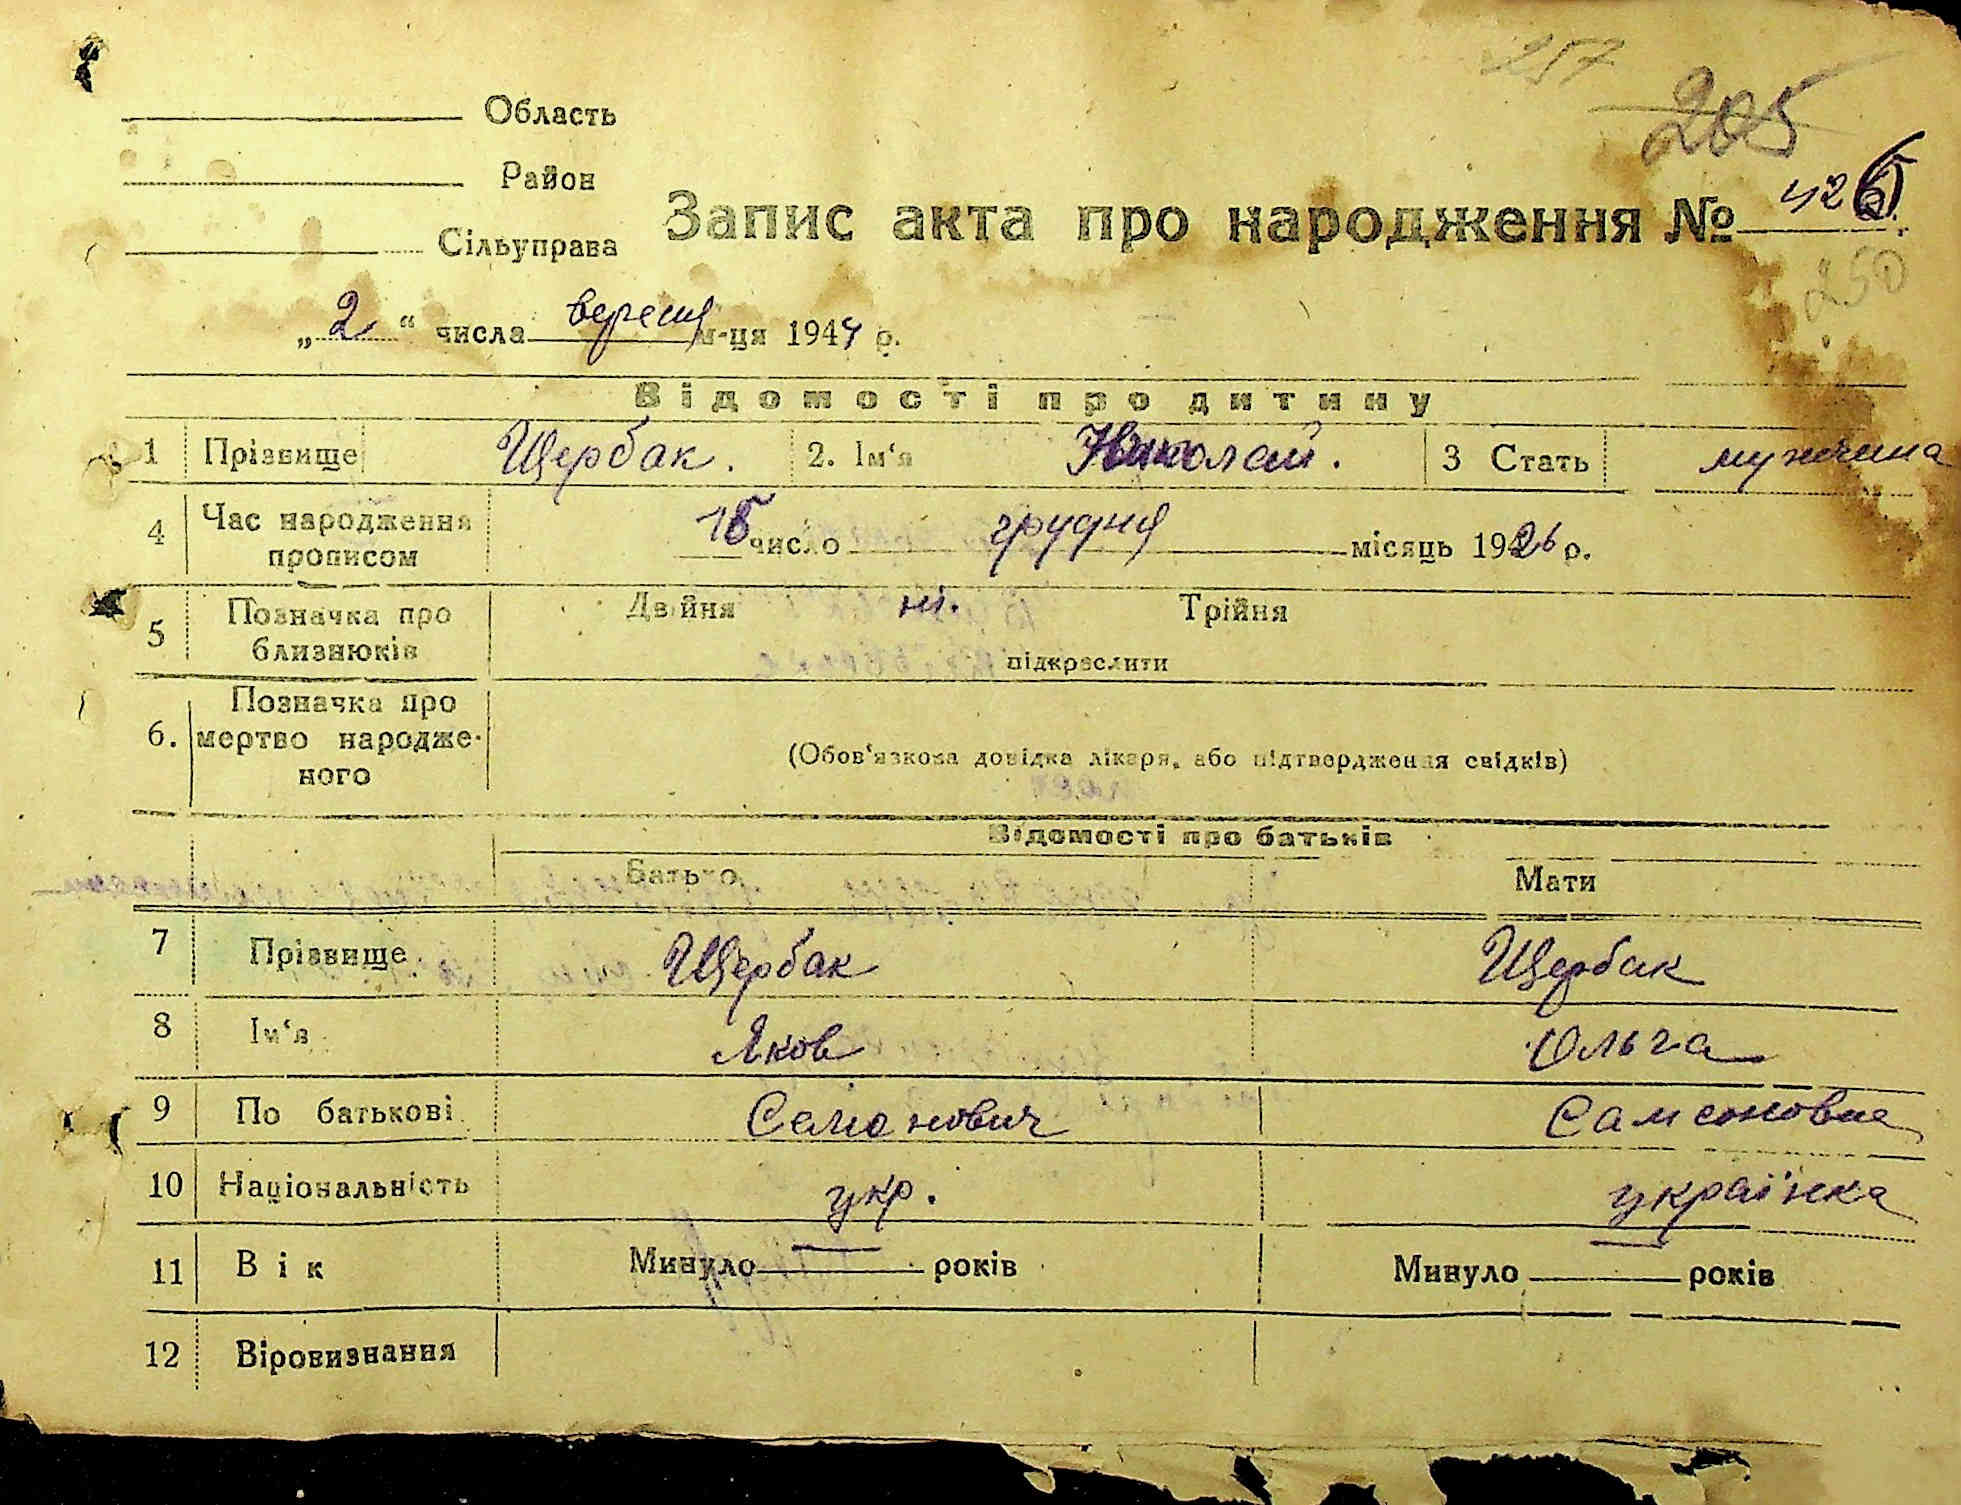 257
205
Область
Район
Сільуправа
Запис акта про народження № 426
250
„ 2 “ числа вересня м-ця 1944 р.
Відомості про дитину
1 Прізвище Щербак. 2. Ім‘я Николай. 3 Стать мужчина
4 Час народження прописом 15 число грудня місяць 1926 р.
5 Позначка про близнюків Двійня ні. Трійня
підкреслити
6. Позначка про мертво народженого
(Обов‘язкова довідка лікаря, або підтвердження свідків)
Відомості про батьків
Батько Мати
7 Прізвище Щербак Щербак
8 Ім‘я Яков Ольга
9 По батькові Семонович Самсоновна
10 Національність укр. українка
11 Вік Минуло — років Минуло — років
12 Віровизнання